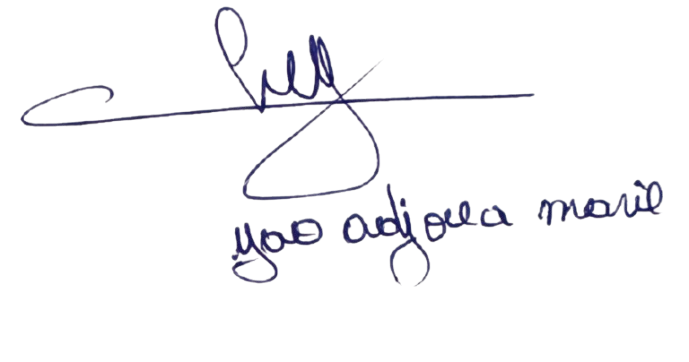 yao adjoua marie